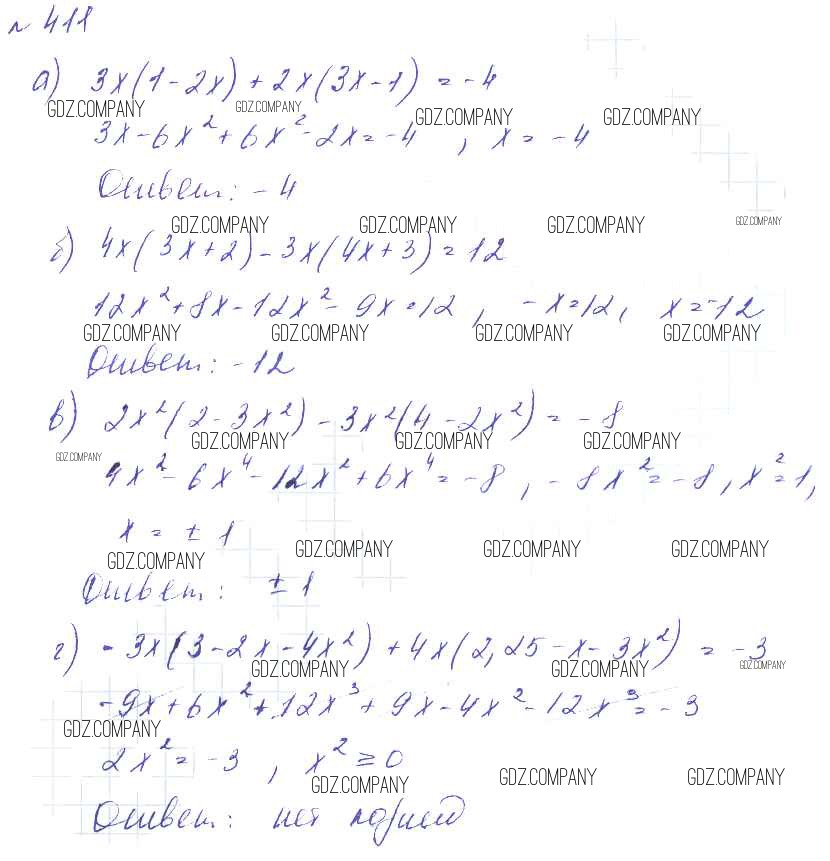 № 411
а) 3x(1-2x)+2x(3x-1) = -4
GDZ.COMPANY GDZ.COMPANY GDZ.COMPANY GDZ.COMPANY
3x-6x²+6x²-2x=-4 , x = -4
Ответ: -4
GDZ.COMPANY GDZ.COMPANY GDZ.COMPANY GDZ.COMPANY
б) 4x(3x+2)-3x(4x+3)=12
12x²+8x-12x²-9x=12 , -x=12, x=-12
GDZ.COMPANY GDZ.COMPANY GDZ.COMPANY GDZ.COMPANY
Ответ: -12
в) 2x²(2-3x²)-3x²(4-2x²) = -8
GDZ.COMPANY GDZ.COMPANY GDZ.COMPANY GDZ.COMPANY
4x²-6x⁴-12x²+6x⁴=-8 , -8x²=-8, x²=1,
x = ±1
GDZ.COMPANY GDZ.COMPANY GDZ.COMPANY GDZ.COMPANY
Ответ: ±1
г) -3x(3-2x-4x²)+4x(2,25-x-3x²) = -3
GDZ.COMPANY GDZ.COMPANY GDZ.COMPANY
-9x+6x²+12x³+9x-4x²-12x³=-3
GDZ.COMPANY
2x²=-3 , x²≥0
GDZ.COMPANY GDZ.COMPANY GDZ.COMPANY
Ответ: нет корней